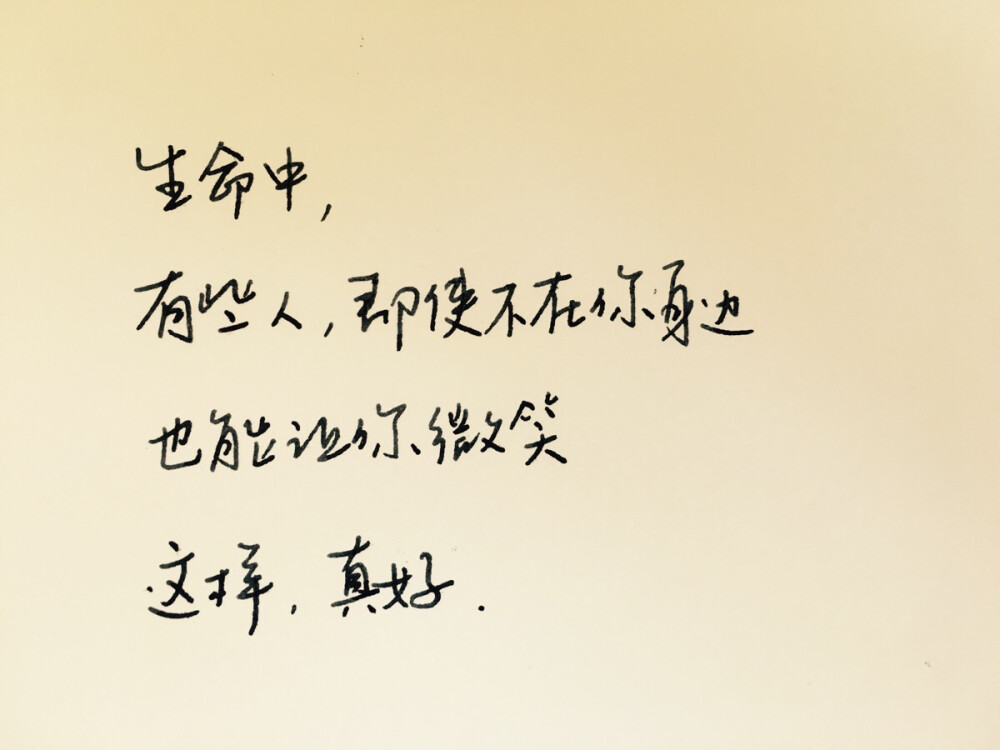 生命中,
有些人,即使不在你身边
也能让你微笑
这样,真好.